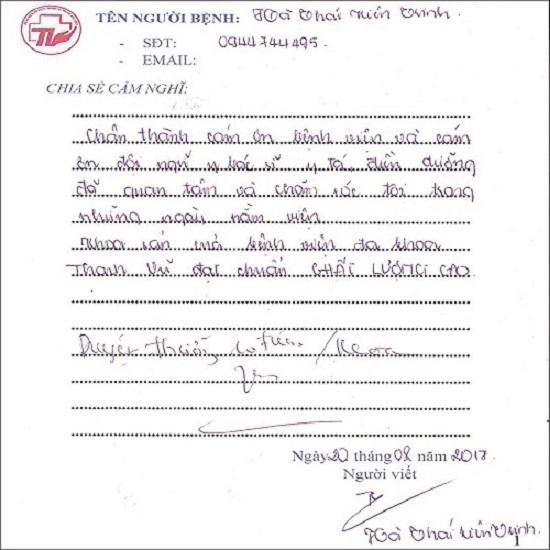 TV
TÊN NGƯỜI BỆNH: Hà Thái Kiên Trinh.
- SĐT: 0944744495.
- EMAIL:
CHIA SẺ CẢM NGHĨ:
Chân thành cám ơn bệnh viện và cám
ơn đội ngũ y bác sĩ, y tá, điều dưỡng
đã quan tâm và chăm sóc tôi trong
những ngày nằm viện.
Khoa sản mổ bệnh viện đa khoa
Thanh Vũ đạt chuẩn CHẤT LƯỢNG CAO
Duyệt thưởng
Ngày 20 tháng 08 năm 2017
Người viết
Hà Thái Kiên Trinh.
1